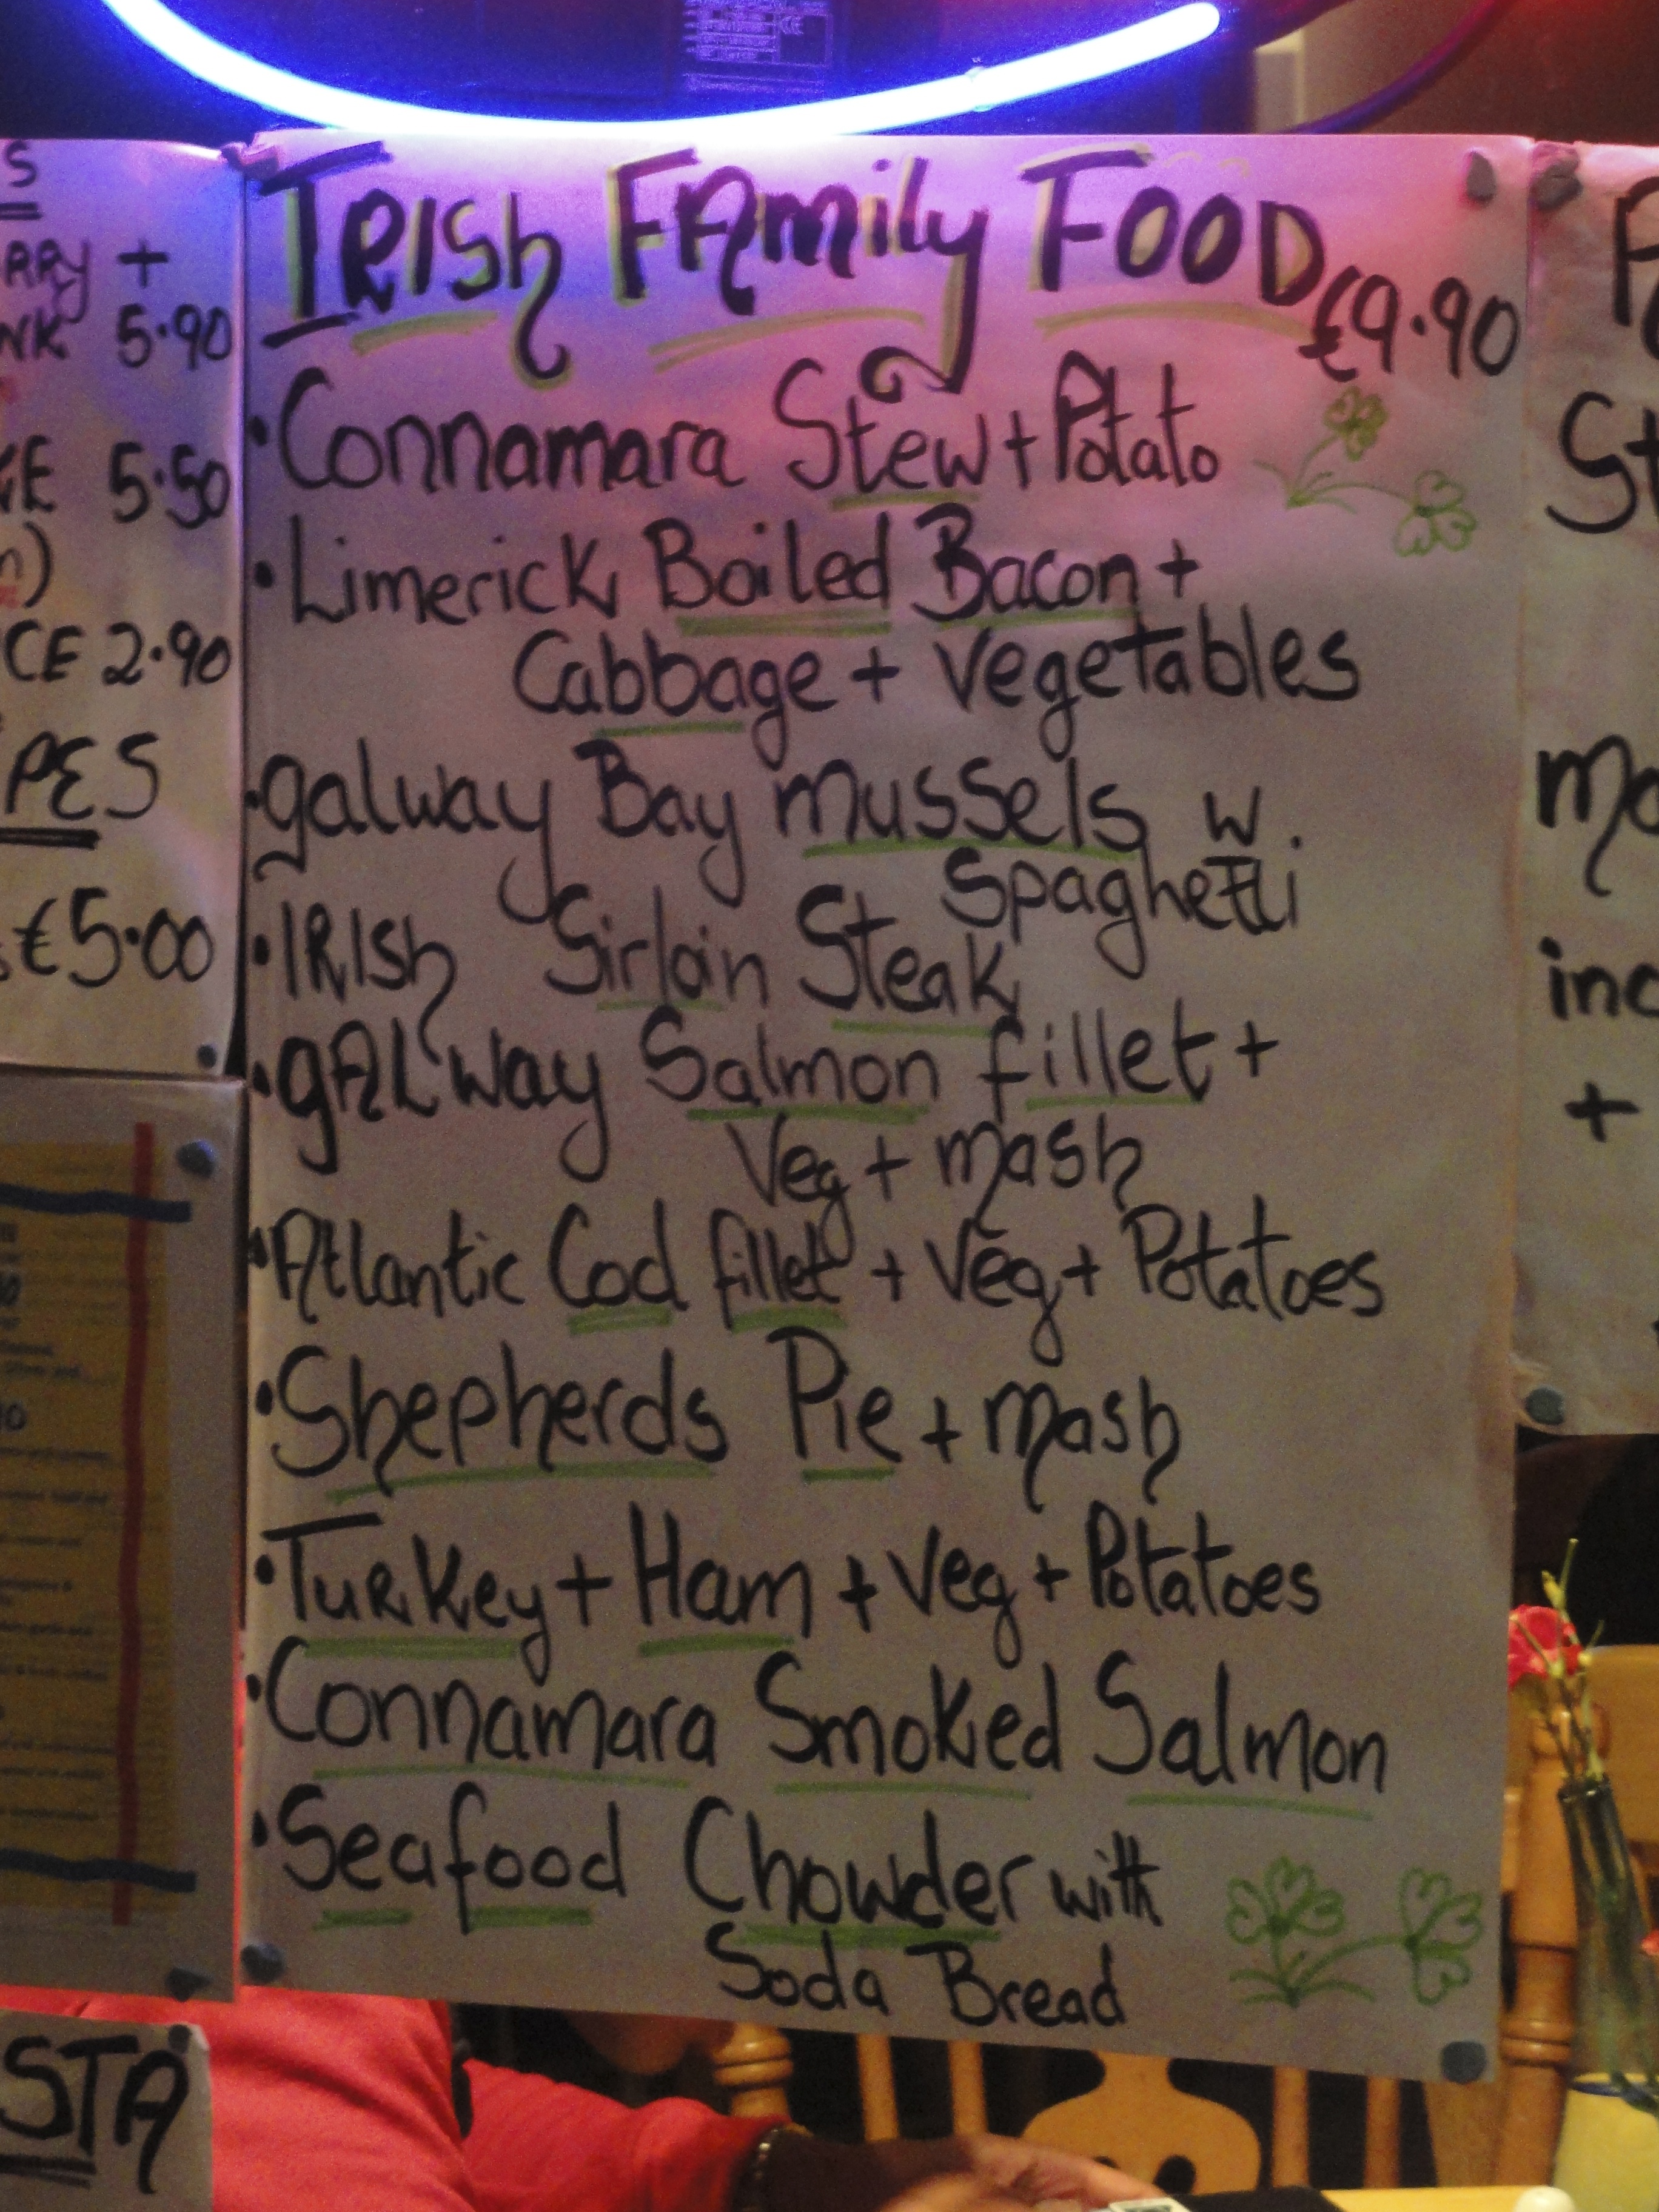 IRISh FAmily FOOD
€9.90
·Connamara Stew + Potato
·Limerick Boiled Bacon +
Cabbage + Vegetables
·galway Bay mussels w.
Spaghetti
·IRISh Sirloin Steak
·gALway Salmon fillet +
Veg + mash
·Atlantic Cod fillet + Veg + Potatoes
·Shepherds Pie + mash
·TuRKey + Ham + Veg + Potatoes
·Connamara Smoked Salmon
·Seafood Chowder with
Soda Bread
S
RRy +
NK 5.90
E 5.50
CE 2.90
PES
€5.00
STA
St
mo
inc
+